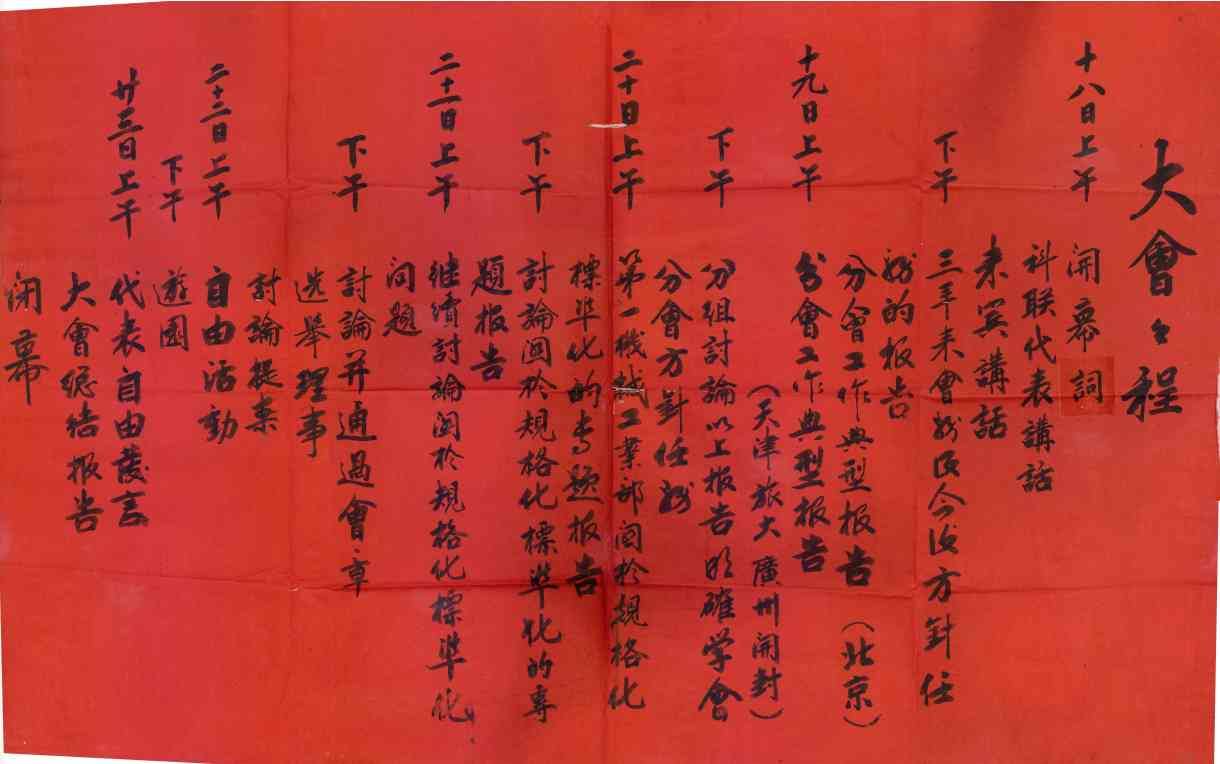 大會々程
十八日上午 開幕詞
科联代表講話
来宾講話
下午 三年来會務及今後方針任
務的报告
十九日上午 分會工作典型报告（北京）
分會工作典型报告
（天津旅大廣州開封）
下午 分組討論以上报告明確学會
分會方針任務
二十日上午 第一機械工業部関於規格化
標準化的专题报告
下午 討論関於規格化標準化的專
題报告
二十一日上午 継續討論関於規格化標準化
问题
下午 討論并通過會章
选舉理事
討論提案
二十二日上午 自由活動
下午 遊園
廿三日上午 代表自由發言
大會總结报告
闭幕